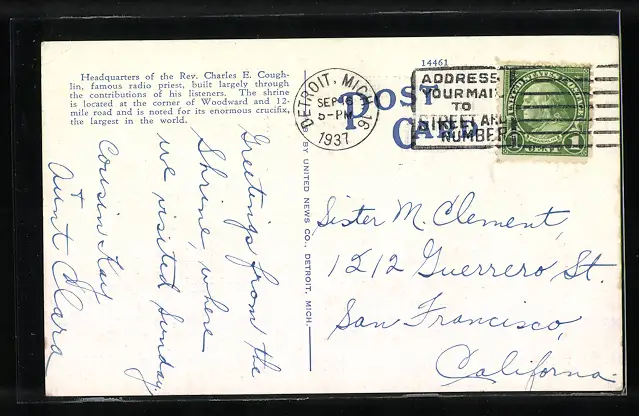 Headquarters of the Rev. Charles E. Cough-
lin, famous radio priest, built largely through
the contributions of his listeners. The shrine
is located at the corner of Woodward and 12-
mile road and is noted for its enormous crucifix,
the largest in the world.
14461
POST
CARD
DETROIT, MICH. 16
SEP
5-PM
1937
ADDRESS
YOUR MAIL
TO
STREET AND
NUMBER
UNITED STATES POSTAGE
1 CENT 1
BY UNITED NEWS CO., DETROIT, MICH.
Greetings from the
Shrine, where
we visited Sunday
Cousin Kay
+
Aunt Clara
Sister M. Clement,
1212 Guerrero St.
San Francisco,
California.